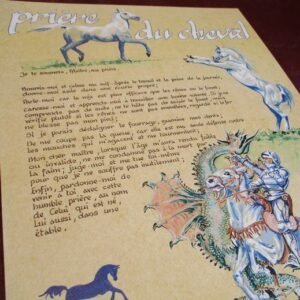 prière du cheval
Je te soumets, Maître, ma prière
Nourris-moi et calme ma soif. Après le travail et la peine de la journée,
donne-moi asile dans une écurie propre;
Parle-moi car la voix est plus efficace que les rênes ou le fouet;
Caresse-moi et apprends-moi à travailler avec bonne volonté. Si tu ne
comprends pas
vérifie plutôt si les rênes ne sont pas mal regarde si le fer
blesse pas mon pied.
Si je parais dédaigner le fourrage, examine mes dents;
Ne me coupe pas la queue, car elle est ma seule défense contre
les mouches qui m'agacent et me tourmentent;
Mon cher maître, lorsque l'âge m'aura rendu faible
ou invalide, ne me condamne pas à la mort par
la faim; juge-moi et tue-moi toi-même
pour que je ne souffre pas inutilement;
Enfin, pardonne-moi de
venir à toi avec cette
humble prière, au nom
de Celui qui est né,
Lui aussi, dans une
étable.